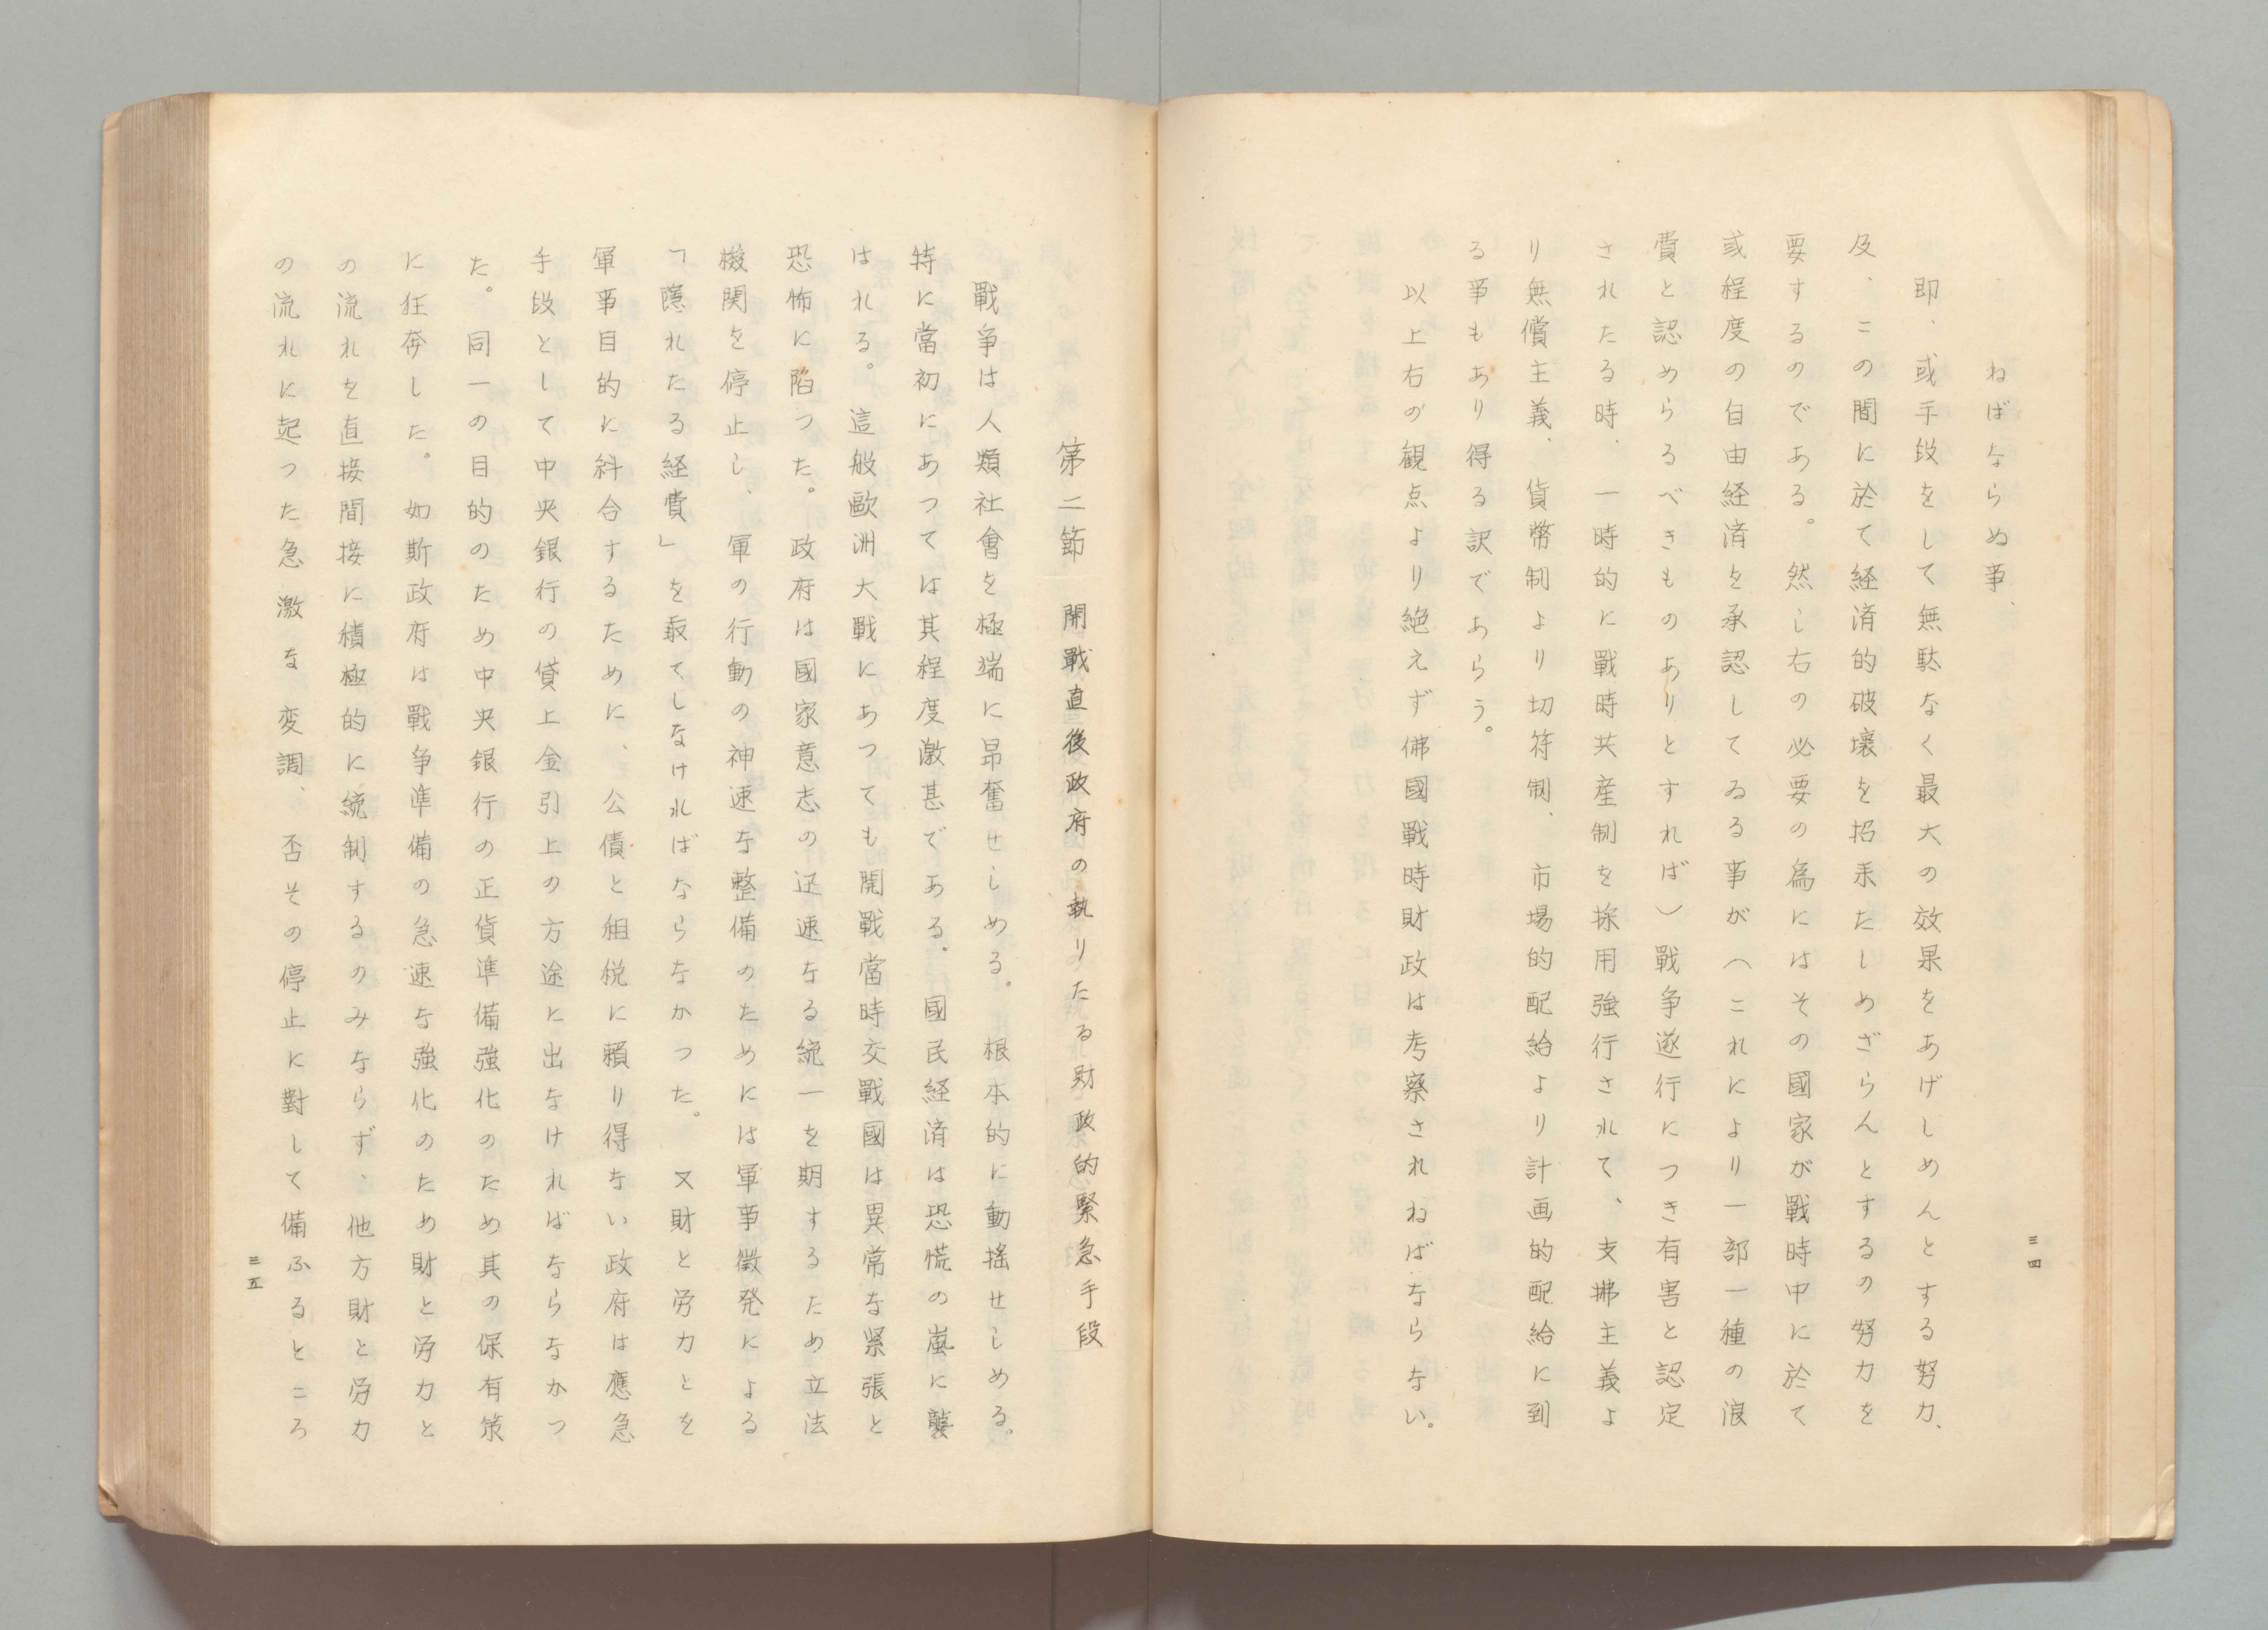 ねばならぬ事、
即、或手段をして無駄なく最大の効果をあげしめんとする努力、
及、この間に於て経済的破壊を招来たしめざらんとするの努力を
要するのである。然し右の必要の為にはその國家が戰時中に於て
或程度の自由経済を承認してゐる事が(これにより一部一種の浪
費と認めらるべきものありとすれば)戰争遂行につき有害と認定
されたる時、一時的に戰時共産制を採用強行されて、支拂主義よ
り無償主義、貨幣制より切符制、市場的配給より計画的配給に到
る事もあり得る訳であらう。
以上右の観点より絶えず佛國戰時財政は考察されねばならない。
三四
第二節 開戰直後政府の執りたる財政的緊急手段
戰争は人類社會を極端に昂奮せしめる。根本的に動搖せしめる。
特に當初にあつては其程度激甚である。國民経済は恐慌の嵐に襲
はれる。這般歐洲大戰にあつても開戰當時交戰國は異常な緊張と
恐怖に陷つた。政府は國家意志の迅速なる統一を期するため立法
機関を停止し、軍の行動の神速な整備のためには軍事徴発による
「隠れたる経費」を敢てしなければならなかつた。又財と労力とを
軍事目的に糾合するために、公債と租税に頼り得ない政府は應急
手段として中央銀行の貸上金引上の方途に出なければならなかつ
た。同一の目的のため中央銀行の正貨準備強化のため其の保有策
に狂奔した。如斯政府は戰争準備の急速な強化のため財と労力と
の流れを直接間接に積極的に統制するのみならず、他方財と労力
の流れに起つた急激な変調、否その停止に對して備ふるところ
三五